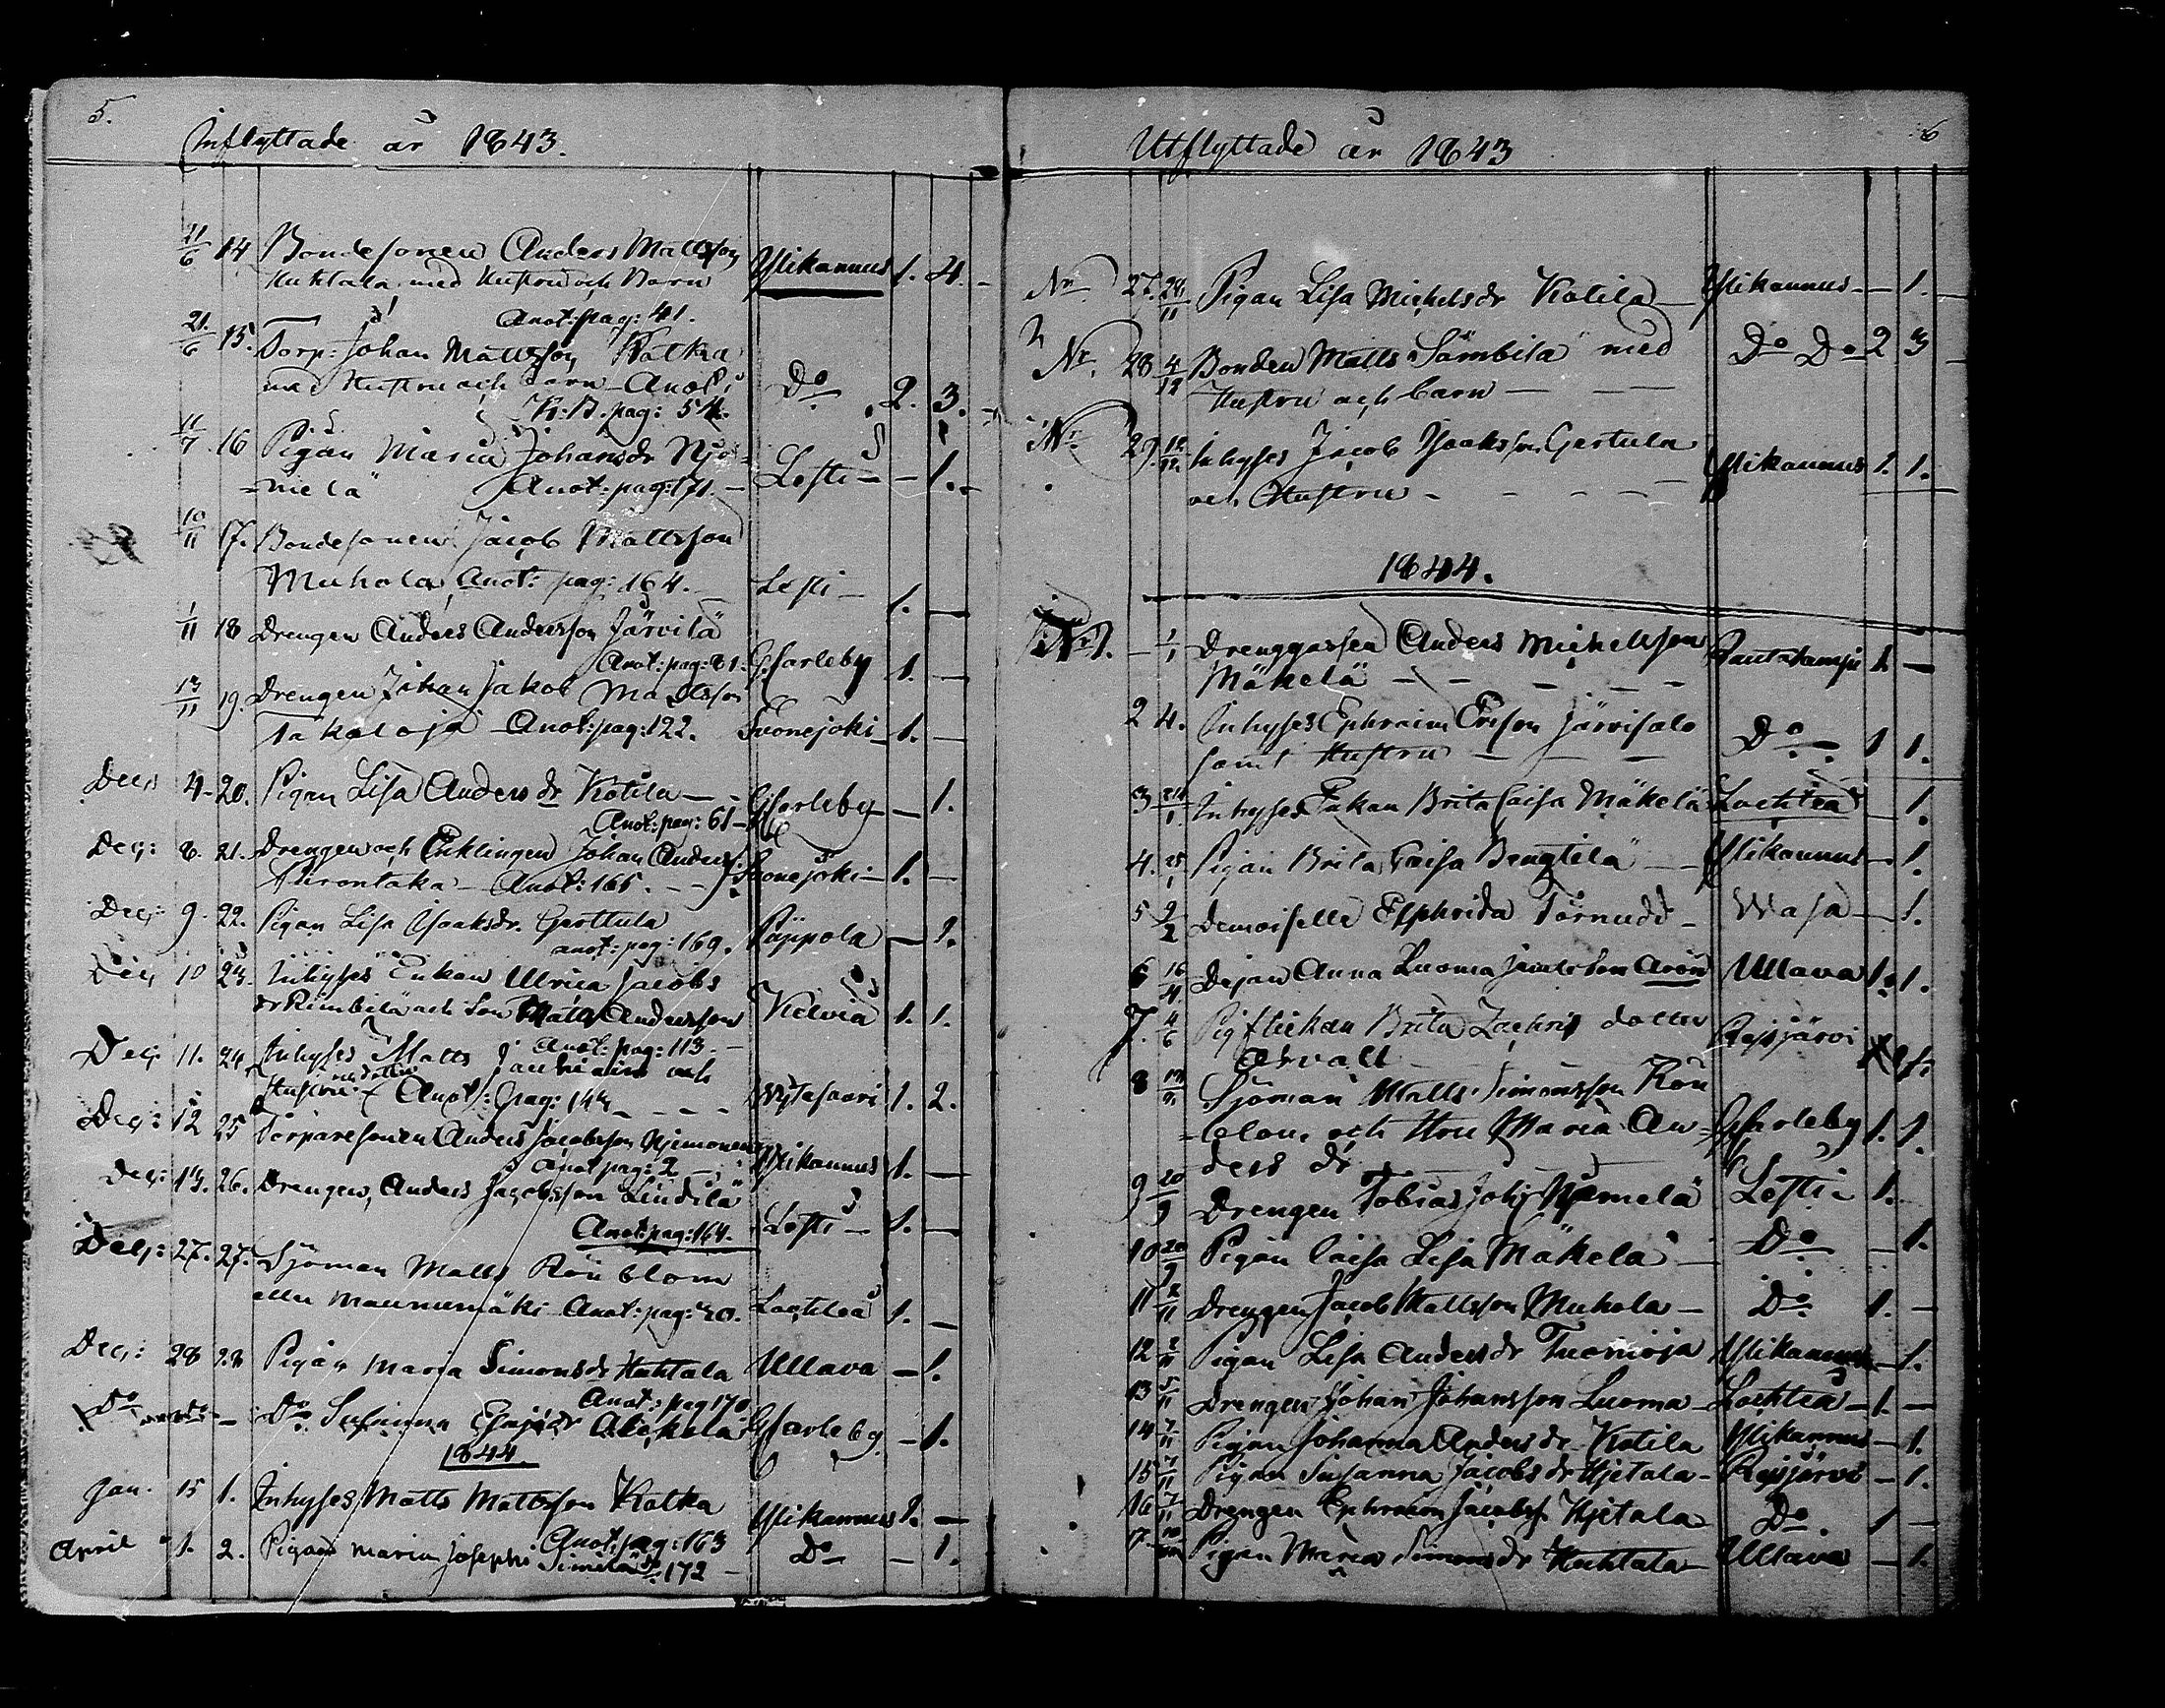 5.
Inflyttade år 1843.
21/6 14 Bondesonen Anders Mattsson Ylikannus 1. 4. -
Huhtala med Hustru och Barn
Anot: pag: 41.
21/6 15. Torp: Johan Mattsson Kalka
med Hustru och barn Anot: Do 2. 3.
K:B. pag: 54.
11/7 16 Pigan Maria Johansdr Nje=
=melä Anot: pag: 171. Lesti - - 1.
10/11 17. Bondesonen Jacob Mattsson
Muhola, Anot: pag: 164. Lesti - 1. -
1/11 18 Drengen Anders Andersson Järvilä
Anot: pag: 81. GCarleby 1. -
13/11 19. Drengen Johan Jakob Mattsson
Takaloja Anot: pag: 122. 1. -
Dec: 4 - 20. Pigan Lisa Andersdr Kotila - - GCarleby - 1.
Anot: pag: 61
Dec: 8. 21. Drengen och Enklingen Johan Anders:
Anot: 165. - - 1. -
Dec: 9. 22. Pigan Lisa Isaaksdr. Gerttula
anot: pag: 169. - 1.
Dec: 10 23. Inhyses Enkan Ulrica Jacobs
dr Rimbilä och Son Matts Andersson Kelviå 1. 1.
Anot: pag: 113. -
Dec: 11. 24. Inhyses Matts och
Hustru och dotter Anot: pag: 144 - - - Wytasaari 1. 2.
Dec: 12 25 Torparesonen Anders Jacobsson
Anot pag: 2 - Ylikannus 1. -
Dec: 13. 26. Drengen, Anders Jacobsson Lindilä
Anot: pag: 164. Lesti - 1. -
Dec: 27. 27. Sjöman Matts Rönblom
eller Maunumäki Anot: pag: 20. Lochteå 1. -
Dec: 28 28 Pigan Maria Simonsdr Huhtala Ullava - 1.
Anot: pag 170
Do Do - Do Susanna Alakela GCarleby - 1.
1844.
Jan. 15 1. Inhyses Matts Mattsson Kalka
Anot: pag: 163 Ylikannus 1. -
April 1. 2. Pigan Maria Josephs Similä Do 172 - Do - 1.
6
Utflyttade år 1843
No 27. 28/11 Pigan Lisa Michelsdr Kotila - Ylikannus - - 1.
No 28 4/12 Bonden Matts Sämbilä med Do Do 2 3
Hustru och barn - - -
No 29. 12/12 Inhyses Jacob Isaksson Gertula
och Hustru - - - - Ylikannus 1. 1.
1844.
No 1. - 1/1 Drenggossen Anders Michelsson
Mäkelä - - - - Rautalampi 1. -
2 4. Inhyses Ephraim Ericson Järvisalo
samt Hustru - - - Do. 1 1.
3 24/1 Inhyses Enkan Brita Caisa Mäkelä Lochteå 1.
4. 25/1 Pigan Brita Caisa Bengtilä - Ylikannus - 1.
5 2/2 Demoiselle Elphrida Törnudd - Wasa - 1.
6 16/4 Dejan Anna Luoma jemte Son Aron Ullava 1. 1.
7. 4/6 Pigflickan Brita Zachris dotter
Ahvall Reisjärvi 1.
8 Sjöman Matts Simonsson Rön
=blom, och Hru Maria An=
ders dr GCarleby 1. 1.
9 20/9 Drengen Tobias Joh: Njemelä Lesti - 1.
10 20/9 Pigan Caisa Lisa Mäkelä - Do - 1.
11 2/11 Drengen Jacob Mattsson Muhola - Do. 1. -
12 2/11 Pigan Lisa Andersdr Tuomioja Ylikannus - 1.
13 5/11 Drengen Johan Johansson Luoma - Lochteå - 1. -
14 7/11 Pigan Johanna Andersdr Kotila Ylikannus - 1.
15 7/11 Pigan Susanna Jacobsdr Hjetala - Reisjärvi - 1.
16 7/11 Drengen Ephraim Jacobss. Hjetala - Do. 1 -
17 Pigan Maria Simonsdr Huhtala - Ullava - 1.